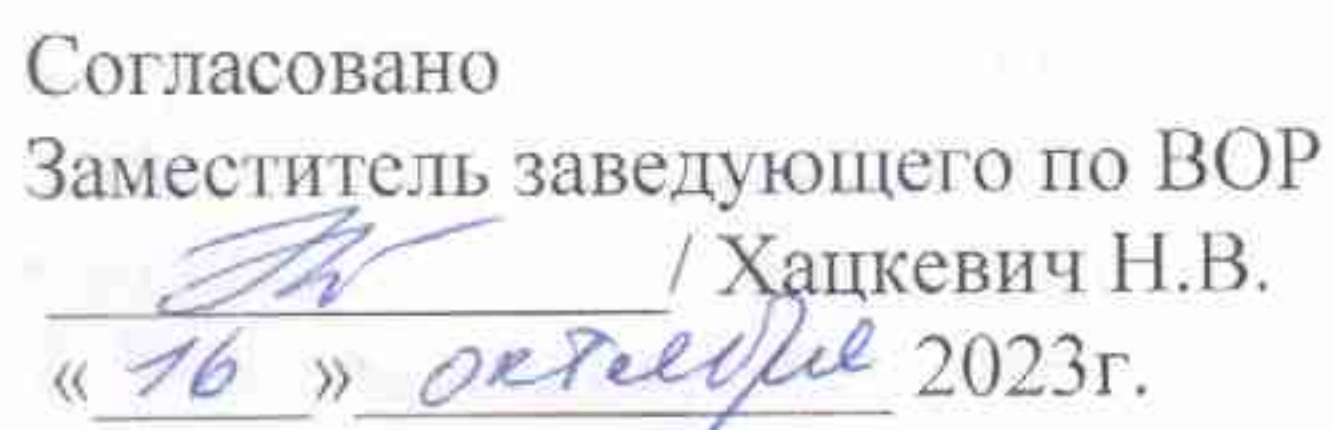 Согласовано
Заместитель заведующего по ВОР
/ Хацкевич Н.В.
« 16 » октября 2023г.